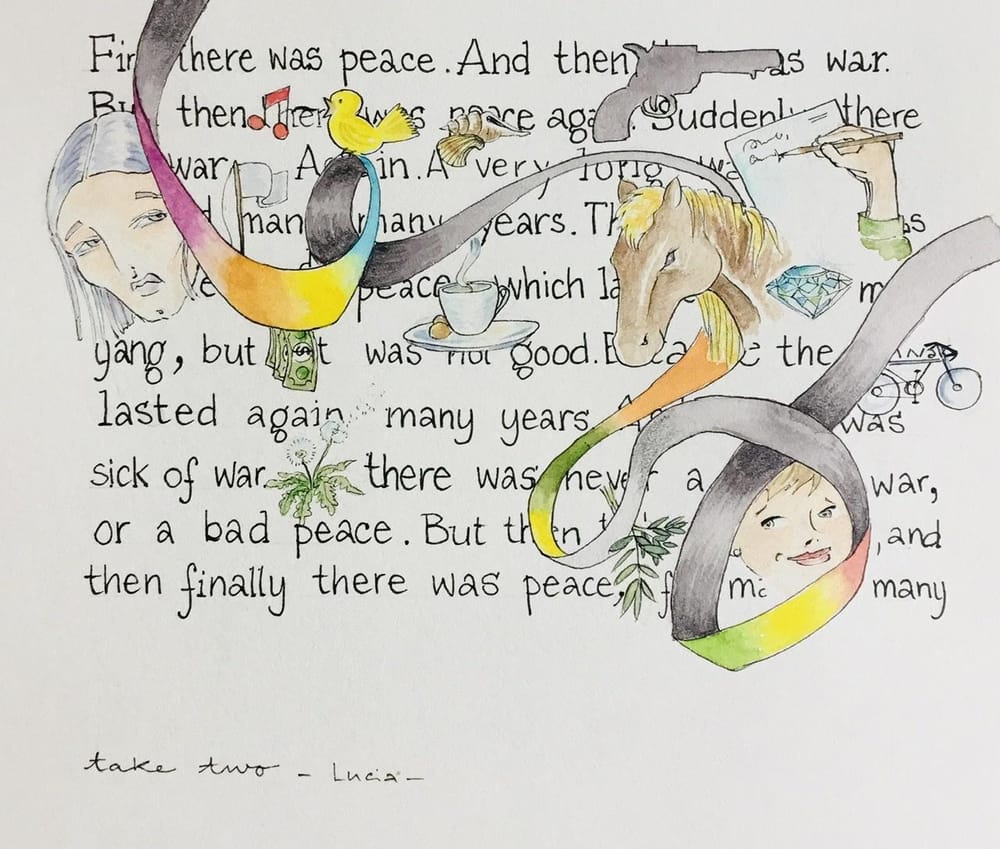 Fir there was peace. And then as war.
Bu then there was peace again. Suddenly there
war. Again. A very long wa
many many years. Th as
peace which la m
yang, but it was not good. Because the
lasted again many years. And was
sick of war. there was never a war,
or a bad peace. But then , and
then finally there was peace, f many
take two - Lucia -